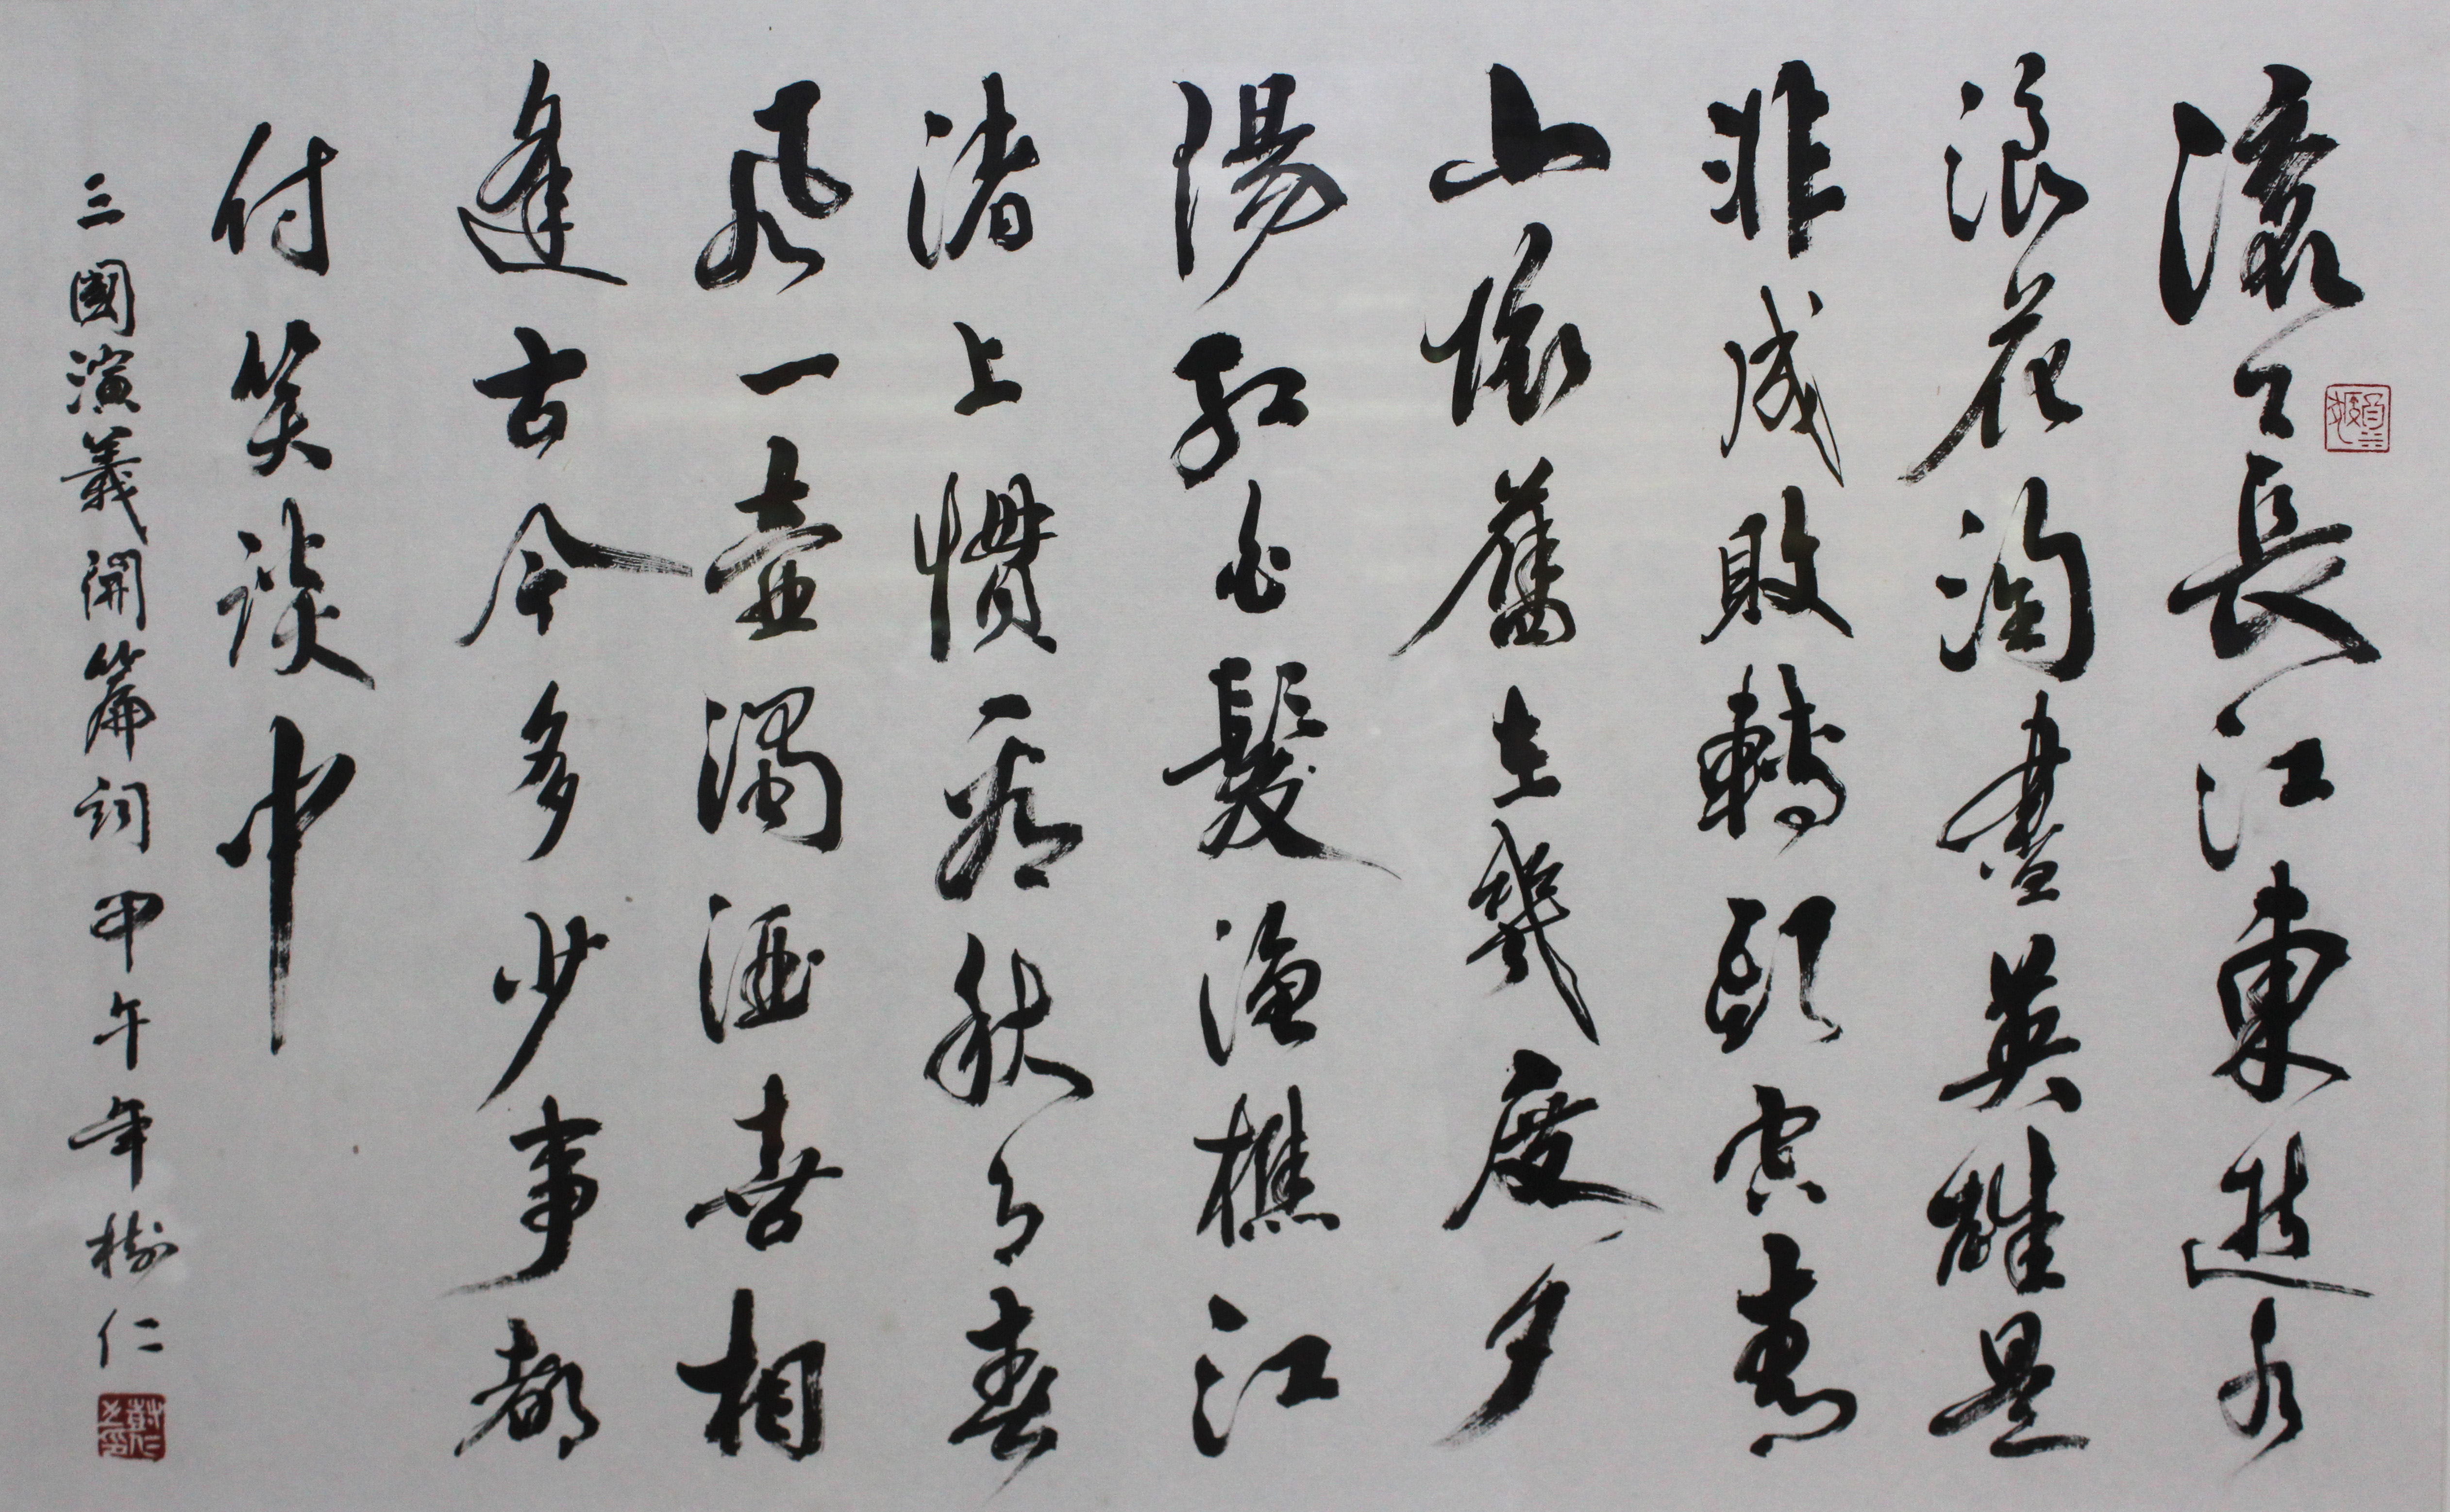 滾々長江東逝水
浪花淘盡英雄是
非成敗轉頭空青
山依舊在幾度夕
陽紅白髮漁樵江
渚上慣看秋月春
風一壺濁酒喜相
逢古今多少事都
付笑談中
三國演義開篇詞甲午年樹仁